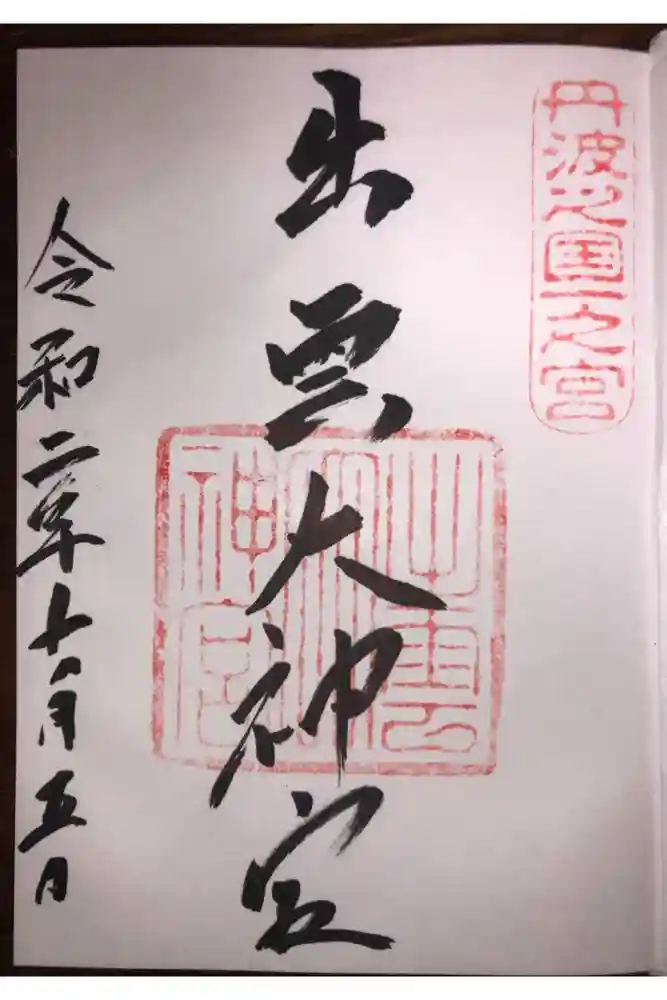 丹波之国一之宮
出雲大神宮
出雲大神宮
令和二年十一月五日